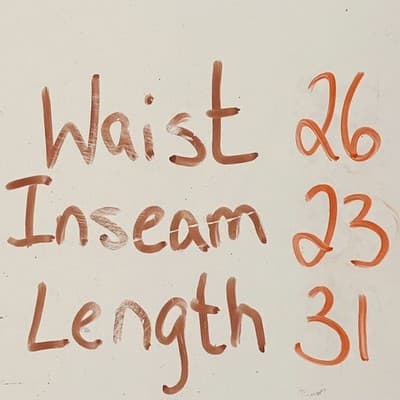 Waist 26
Inseam 23
Length 31